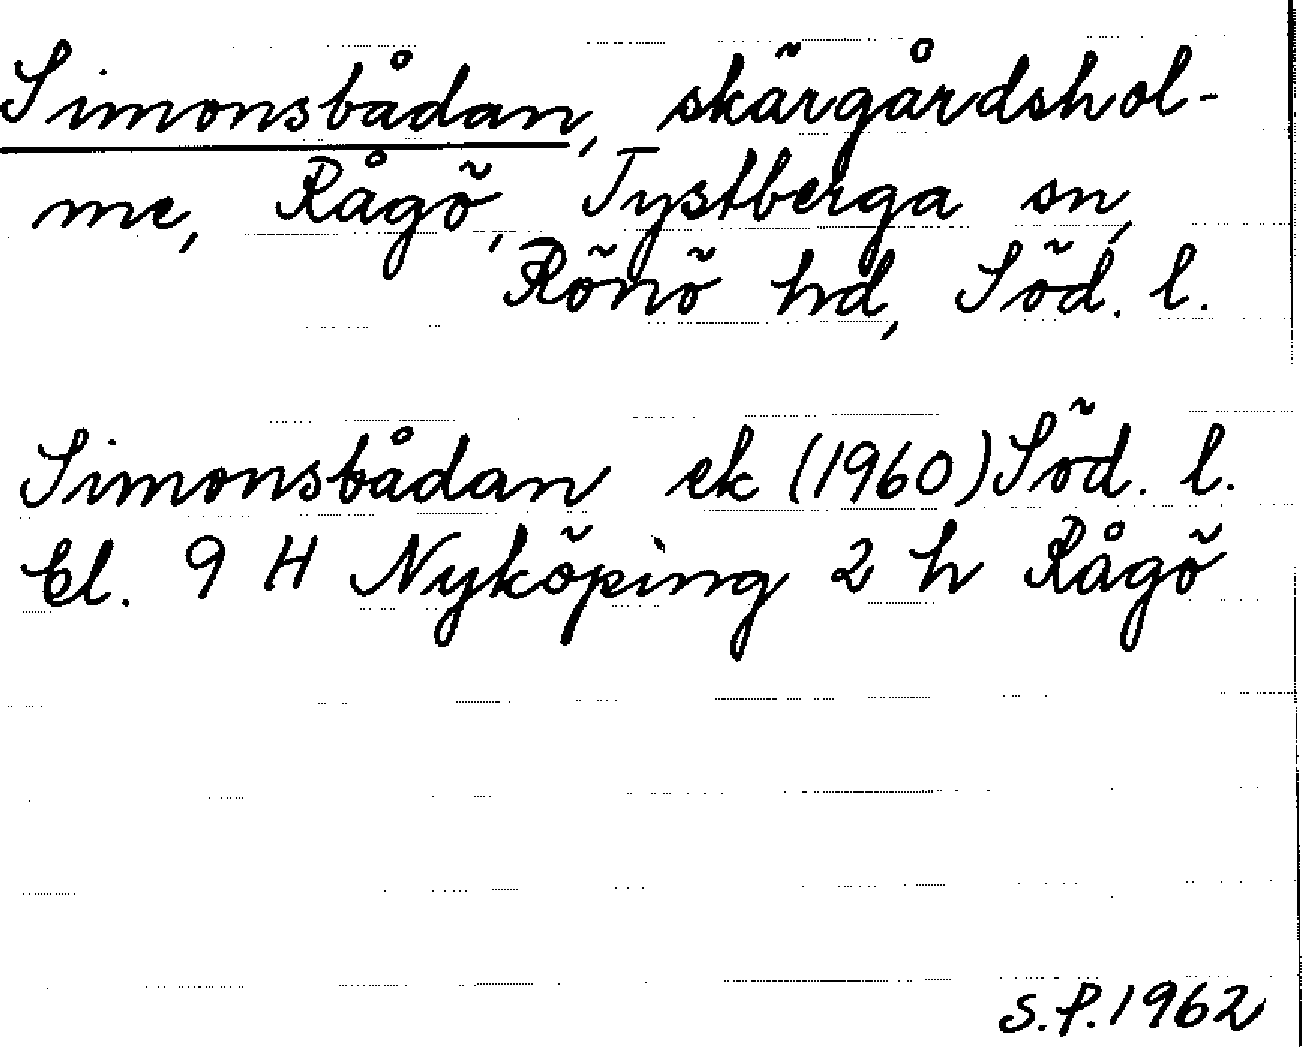 Simonsbådan, skärgårdshol-
me, Rågö, Tystberga sn,
Rönö hd, Söd. l.
Simonsbådan ek (1960) Söd. l.
bl. 9 H Nyköping 2 h Rågö
S.P. 1962